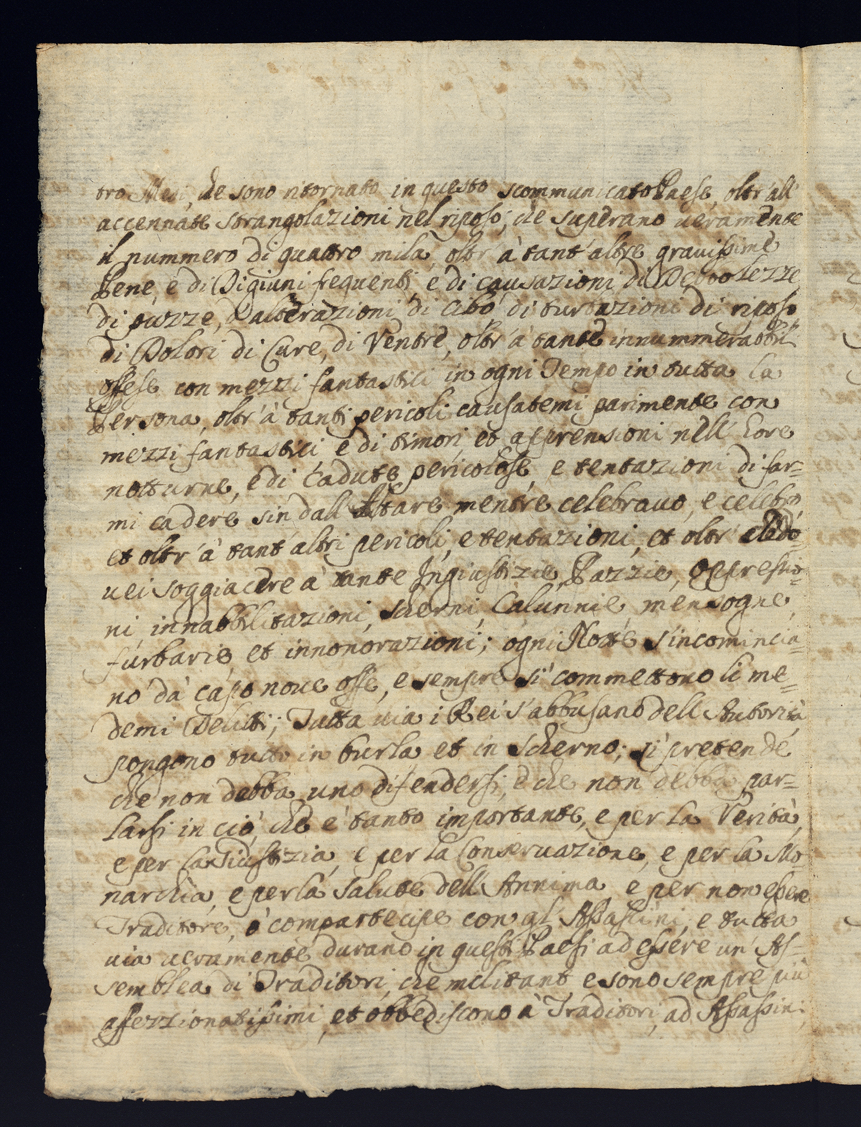 tro Mesi, che sono ritornato in questo scommunicato Paese, oltr' all'
accennate strangolazioni nel riposo, che superano veramente
il nummero di quattro mila, oltr' à tant' altre gravissime
Pene, e di Digiuni frequenti e di causazioni di Debolezze,
di puzze, d'alterazioni di cibo, di turbazioni di riposo
di Dolori di Cuore, di Ventre, oltr' à tante innummerabili
offese con mezzi fantastici in ogni Tempo in tutta la
Persona, oltr' à tanti pericoli causatemi parimente con
mezzi fantastici e di timori et apprensioni nell' hore
notturne, e di Cadute pericolose e tentazioni di far=
mi cadere sin dall' Altare mentre celebravo, e celebro
et oltr' à tant' altri pericoli, e tentazioni, et oltr'
vei soggiacere a tante Ingiustizie, Pazzie, Oppressio=
ni innabbilitazioni, scherni, Calunnie, mensogne,
furbarie et innonorazioni; ogni Notte s'incomincia=
no da capo nove offese, e sempre si commettono li me=
demi Delitti; Tutta via i Rei s'abbusano dell' Autorità
pongono tutto in burla et in scherno; si pretende
che non debba uno difendersi, e che non debba par=
larsi in ciò che è tanto importante, e per la Verità,
e per la Giustizia, e per la Conservazione, e per la Mo=
narchia, e per la salute dell' Annima, e per non essere
Traditore, ò compartecipe con gl' Assassini, e tutta
via veramente durano in questi Paesi ad essere un' As=
semblea di Traditori, che militano e sono sempre più
affezzionatissimi, et obbediscono à Traditori, ad Assassini,